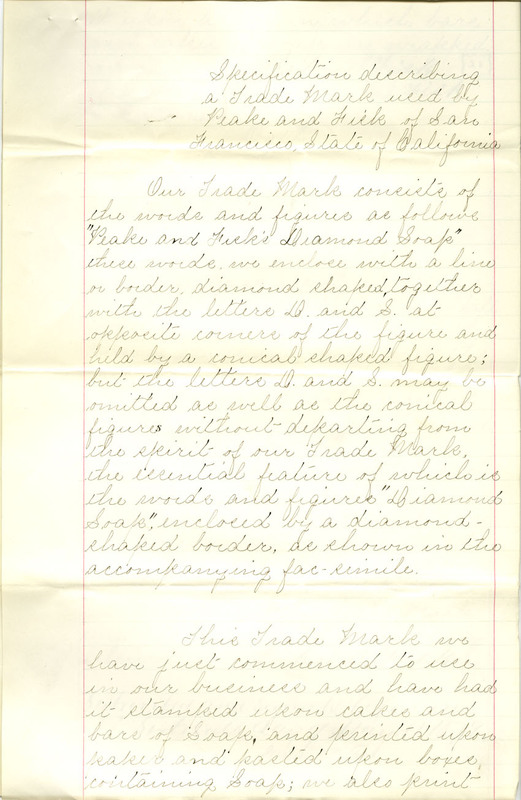 Specification describing
a Trade Mark used by
Peake and Fick of San
Francisco, State of California
Our Trade Mark consists of
the words and figures as follows
"Peake and Fick's Diamond Soap"
these words, we enclose with a line
or border, diamond shaped, together
with the letters D. and S. at
opposite corners of the figure and
held by a conical shaped figure;
but the letters D. and S. may be
omitted as well as the conical
figures without departing from
the spirit of our Trade Mark,
the essential feature of which is
the words and figures "Diamond
Soap", enclosed by a diamond-
shaped border, as shown in the
accompanying fac-simile.
This Trade Mark we
have just commenced to use
in our business and have had
it stamped upon cakes and
bars of Soap, and printed upon
paper and pasted upon boxes,
containing Soap; we also print